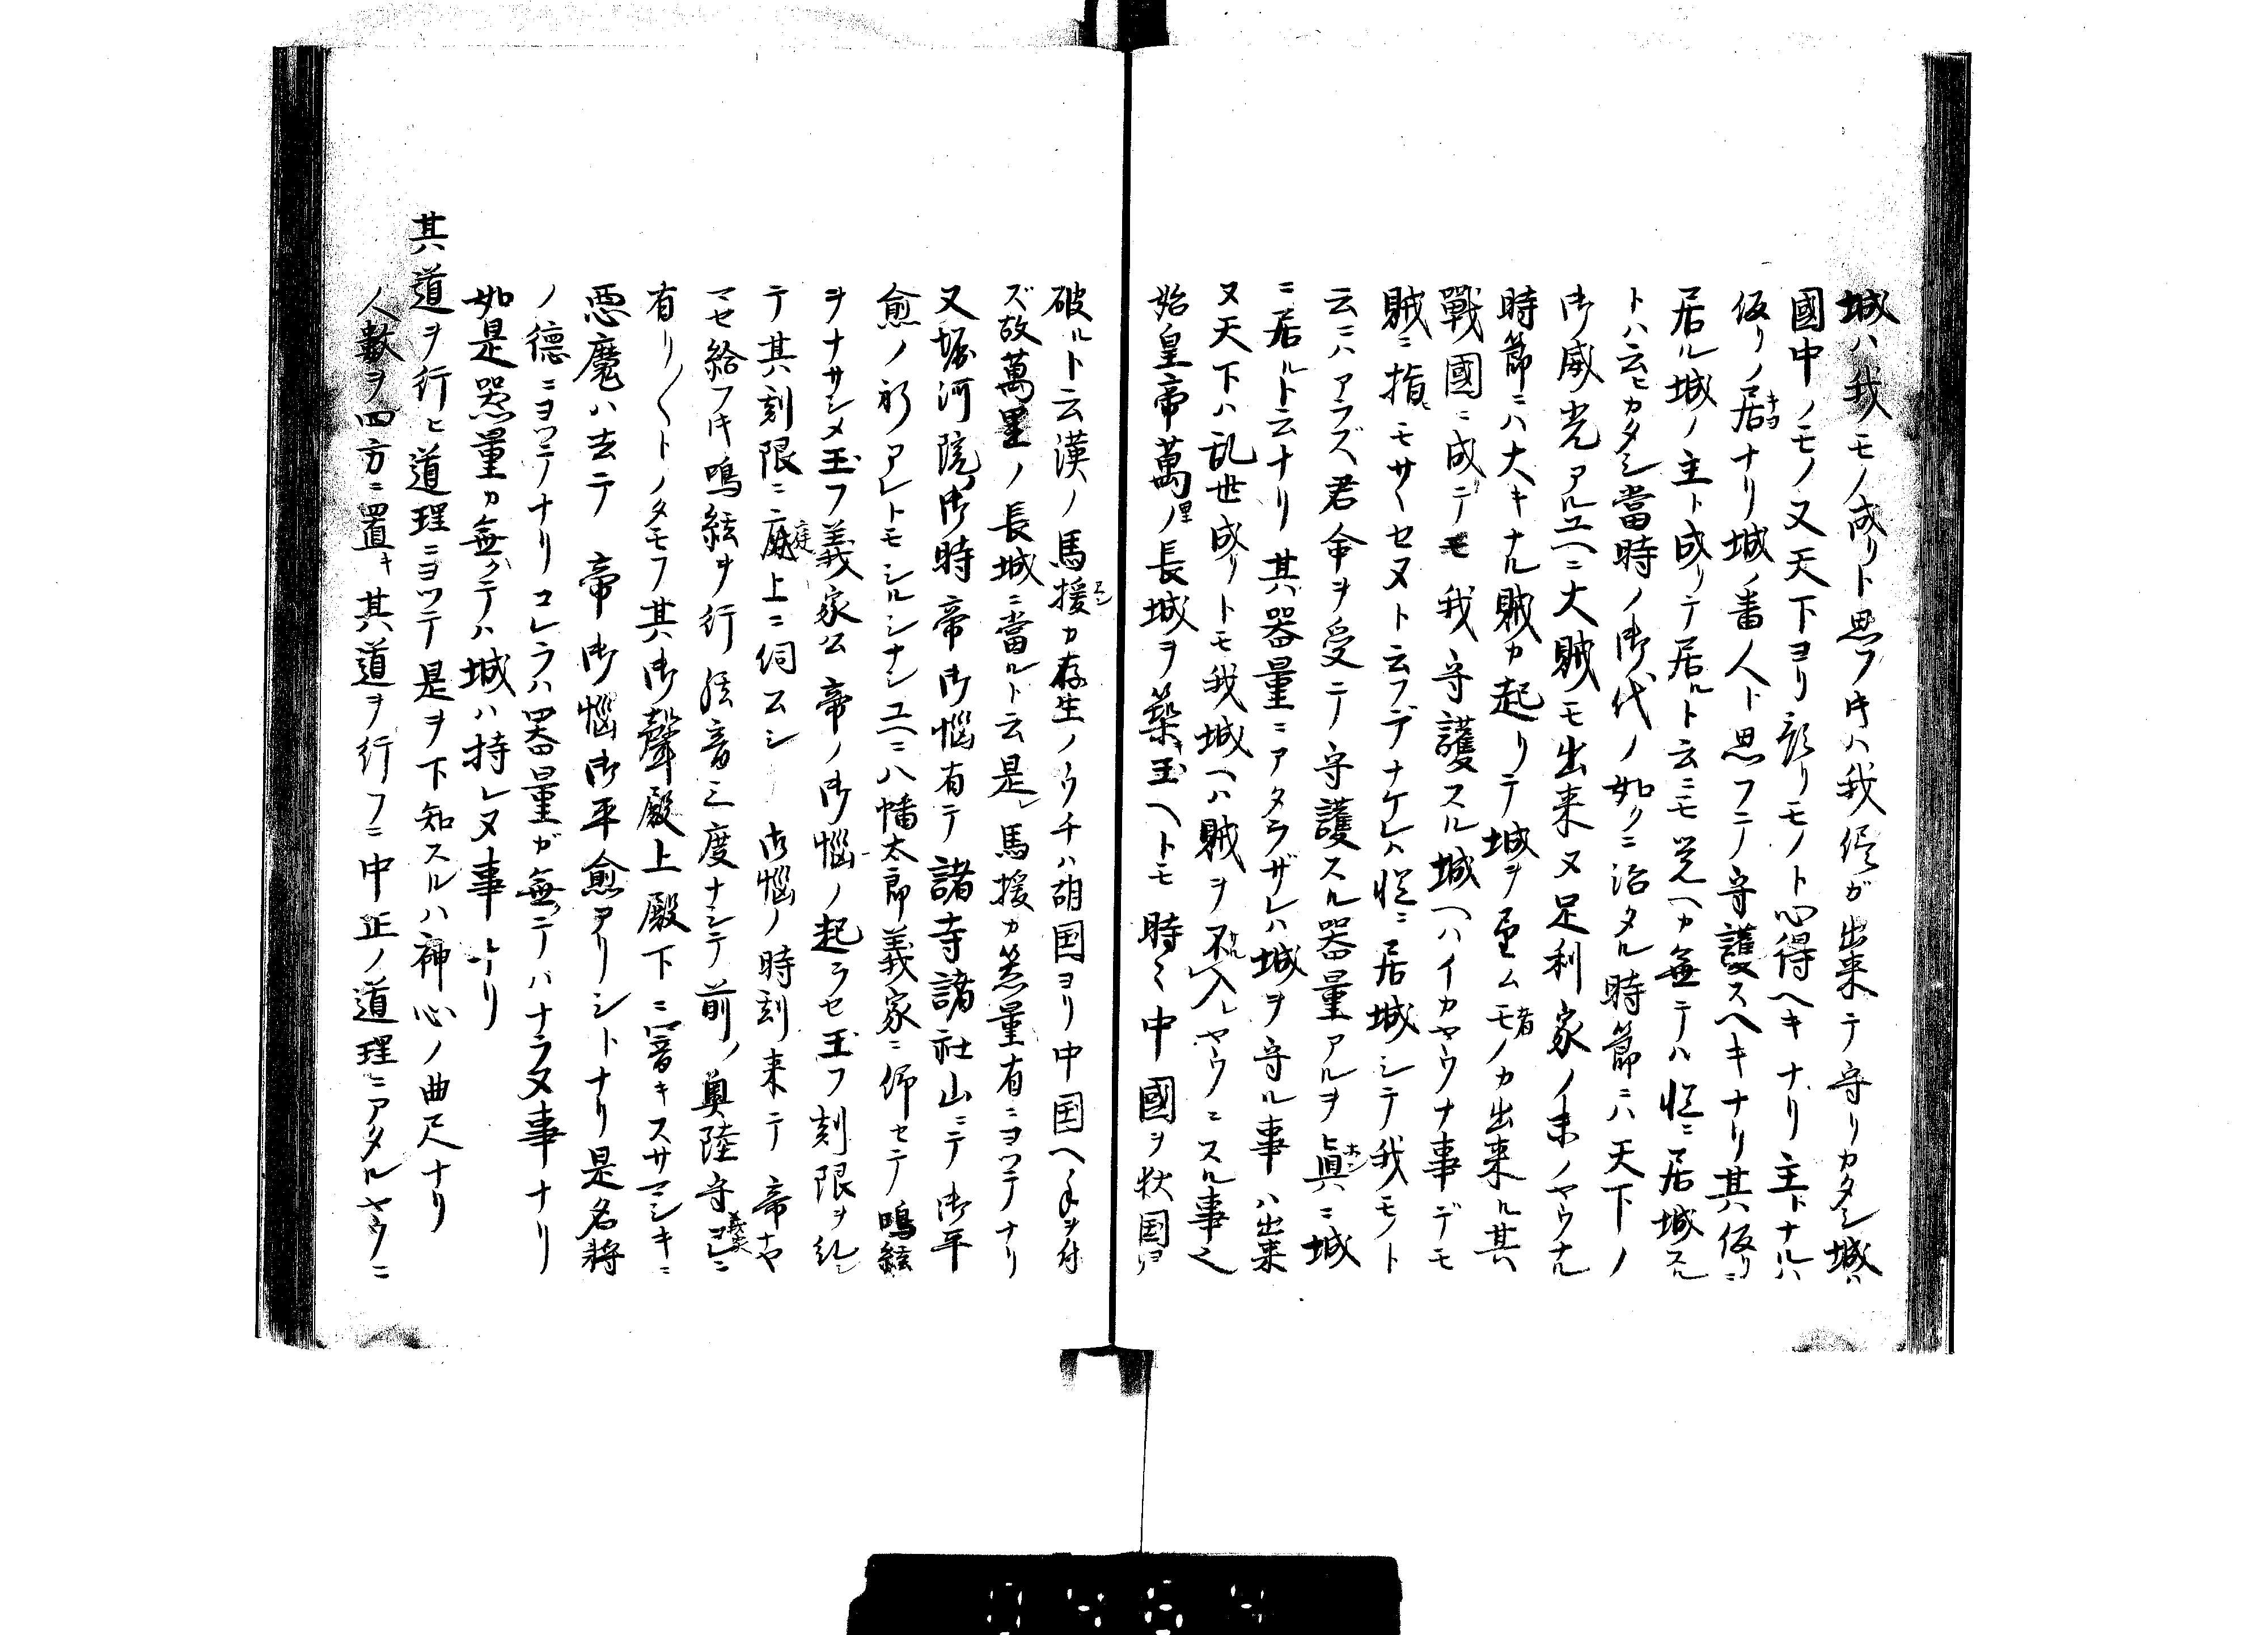 城ハ我モノ成リト思フ時ハ我侭ガ出来テ守リカタシ城ハ
國中ノモノ又天下ヨリ預リモノト心得ヘキナリ主トナルハ
仮リノ居キヨナリ城ノ番人ト思フテ守護スヘキナリ其仮リニ
居ル城ノ主ト成リテ居ルト云ニモ覚ヘカ無テハ慥ニ居城スル
トハ云ヒカタシ當時ノ御代ノ如クニ治タル時節ニハ天下ノ
御威光アルユヘニ大賊モ出来ヌ足利家ノ末ノヤウナル
時節ニハ大キナル賊カ起リテ城ヲ望ムモノ者カ出来ル其
戰國ニ成テモ我守護スル城ヘハイカヤウナ事デモ
賊ニ指ヒモサヽセヌト云フデナケレハ慥ニ居城シテ我モノト
云ニハアラズ君命ヲ受テ守護スル器量アルヲ眞ホンニ城
ニ居ルト云ナリ其器量ニアタラザレハ城ヲ守ル事ハ出来
ヌ天下ハ乱世成リトモ我城ヘハ賊ヲ不入レヤウニスル事也
始皇帝萬里ノ長城ヲ築キ玉ヘトモ時〻中國ヲ狄国ヨリ
破ルト云漢ノ馬援エンカ存生ノウチハ胡国ヨリ中国ヘ手ヲ付
ズ故萬里ノ長城ニ當ルト云是レ馬援カ器量有ニヨツテナリ
又堀河院ノ御時帝御惱有テ諸寺諸社山ニテ御平
愈ノ祈アレトモシルシナシユヘニ八幡太郎義家ニ仰セテ鳴絃
ヲナサシメ玉フ義家公帝ノ御惱ノ起ラセ玉フ刻限ヲ糺シ
テ其刻限ニ庭上ニ伺コムシ御惱ノ時刻来テ帝ナヤ
マセ給フ時鳴絃ヲ行絃音三度ナシテ前ノ奥陸守義家コレニ
有リ〳〵トノタモフ其御聲殿上殿下ニ響キスサマシキニ
悪魔ハ去テ 帝御惱御平愈アリシトナリ是名将
ノ德ニヨツテノナリコレラハ器量ガ無テハナラヌ事ナリ
如是器量カ無クテハ城ハ持レヌ事ナリ
其道ヲ行ヒ道理ニヨツテ是ヲ下知スルハ神心ノ曲尺ナリ
人數ヲ四方ニ置キ其道ヲ行フニ中正ノ道理ニアタルヤウニ